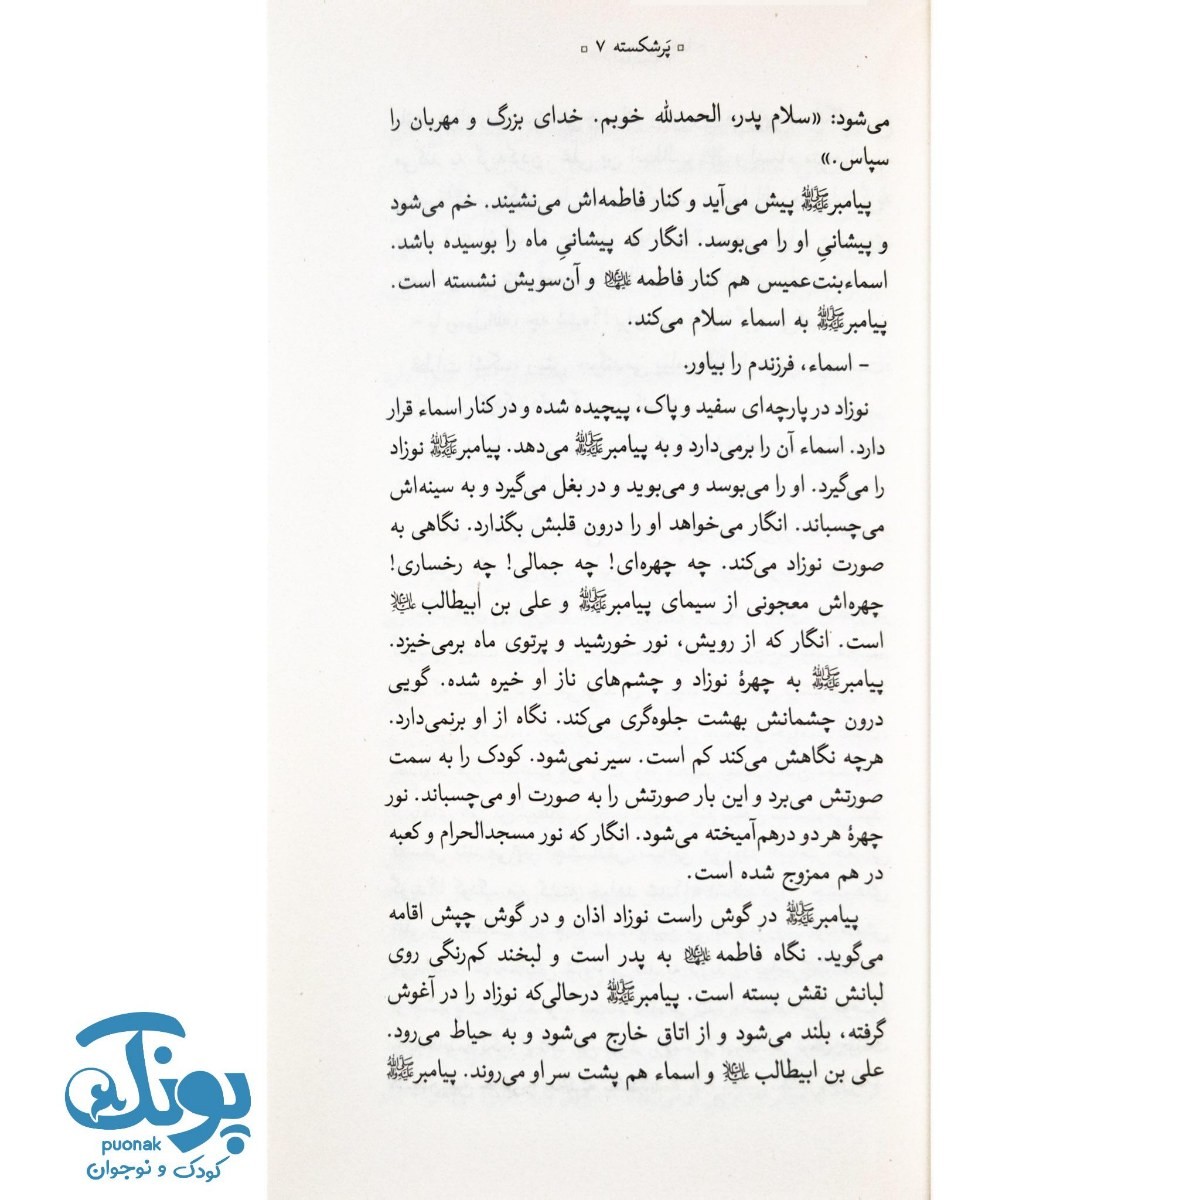 ▫ پَرشکسته ۷ ▫
می‌شود: «سلام پدر، الحمدلله خوبم. خدای بزرگ و مهربان را
سپاس.»
پیامبرﷺ پیش می‌آید و کنار فاطمه‌اش می‌نشیند. خم می‌شود
و پیشانیِ او را می‌بوسد. انگار که پیشانیِ ماه را بوسیده باشد.
اسماءبنت‌عمیس هم کنار فاطمه علیهاالسلام و آن‌سویش نشسته است.
پیامبرﷺ به اسماء سلام می‌کند.
– اسماء، فرزندم را بیاور.
نوزاد در پارچه‌ای سفید و پاک، پیچیده شده و در کنار اسماء قرار
دارد. اسماء آن را برمی‌دارد و به پیامبرﷺ می‌دهد. پیامبرﷺ نوزاد
را می‌گیرد. او را می‌بوسد و می‌بوید و در بغل می‌گیرد و به سینه‌اش
می‌چسباند. انگار می‌خواهد او را درون قلبش بگذارد. نگاهی به
صورت نوزاد می‌کند. چه چهره‌ای! چه جمالی! چه رخساری!
چهره‌اش معجونی از سیمای پیامبرﷺ و علی بن ابیطالب علیه‌السلام
است. انگار که از رویش، نور خورشید و پرتوی ماه برمی‌خیزد.
پیامبرﷺ به چهرهٔ نوزاد و چشم‌های ناز او خیره شده. گویی
درون چشمانش بهشت جلوه‌گری می‌کند. نگاه از او برنمی‌دارد.
هرچه نگاهش می‌کند کم است. سیر نمی‌شود. کودک را به سمت
صورتش می‌برد و این بار صورتش را به صورت او می‌چسباند. نور
چهرهٔ هر دو درهم‌آمیخته می‌شود. انگار که نور مسجدالحرام و کعبه
در هم ممزوج شده است.
پیامبرﷺ در گوش راست نوزاد اذان و در گوش چپش اقامه
می‌گوید. نگاه فاطمه علیهاالسلام به پدر است و لبخند کم‌رنگی روی
لبانش نقش بسته است. پیامبرﷺ درحالی‌که نوزاد را در آغوش
گرفته، بلند می‌شود و از اتاق خارج می‌شود و به حیاط می‌رود.
علی بن ابیطالب علیه‌السلام و اسماء هم پشت سر او می‌روند. پیامبرﷺ
پونک
puonak
کودک و نوجوان